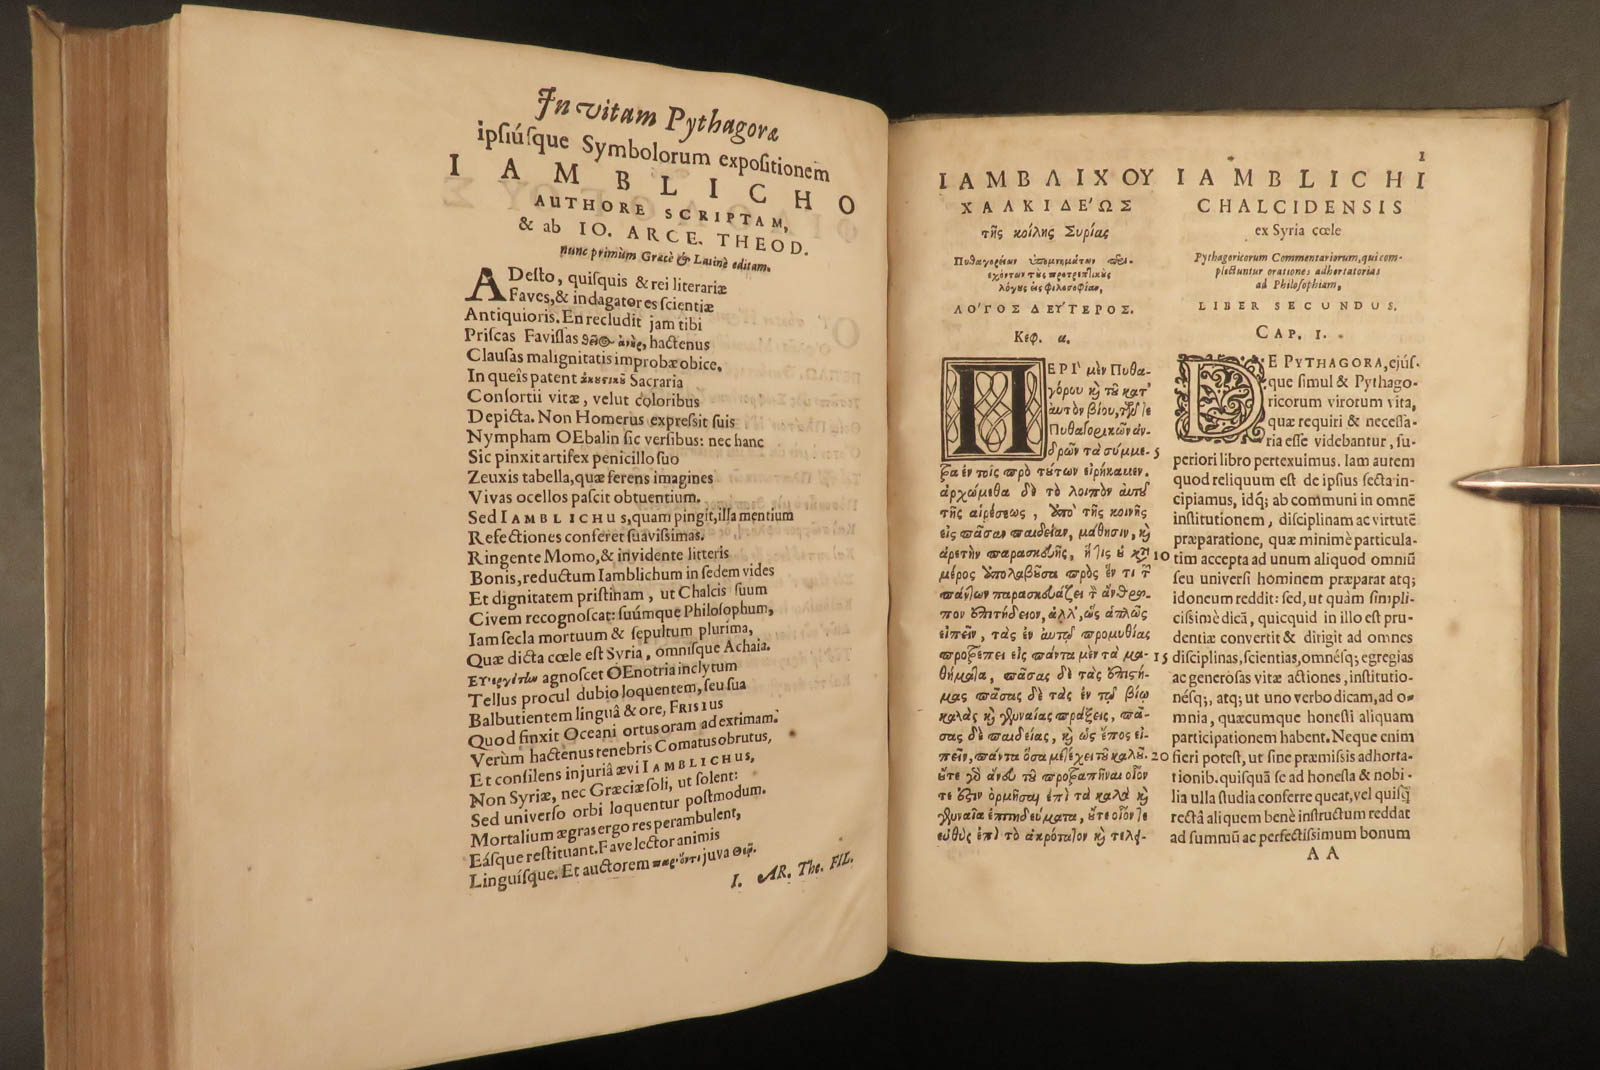 In vitam Pythagoræ
ipsiúsque Symbolorum expositionem
IAMBLICHO
AUTHORE SCRIPTAM,
& ab IO. ARCE. THEOD.
nunc primùm Græcè & Latinè editam.
ADesto, quisquis & rei literariæ
Faves, & indagatores scientiæ
Antiquioris. En recludit jam tibi
Priscas Favissas θεῖος ἀνὴρ, hactenus
Clausas malignitatis improbæ obice,
In queîs patent Sacraria
Consortii vitæ, velut coloribus
Depicta. Non Homerus expressit suis
Nympham OEbalin sic versibus: nec hanc
Sic pinxit artifex penicillo suo
Zeuxis tabella, quæ ferens imagines
Vivas ocellos pascit obtuentium.
Sed IAMBLICHUS, quam pingit, illa mentium
Refectiones conferet suavissimas.
Ringente Momo, & invidente litteris
Bonis, reductum Iamblichum in sedem vides
Et dignitatem pristinam, ut Chalcis suum
Civem recognoscat: suúmque Philosophum,
Iam secla mortuum & sepultum plurima,
Quæ dicta cœle est Syria, omnisque Achaia.
Εὐεργέτην agnoscet OEnotria inclytum
Tellus procul dubio loquentem, seu sua
Balbutientem linguâ & ore, FRISIUS
Quod finxit Oceani ortus oram ad extimam.
Verùm hactenus tenebris Comatus obrutus,
Et consilens injuriâ ævi IAMBLICHUS,
Non Syriæ, nec Græciæ soli, ut solent:
Sed universo orbi loquentur postmodum.
Mortalium ægras ergo res perambulent,
Eásque restituant. Fave lector animis
Linguísque. Et auctorem juva
I. AR. The. FIL.
1
ΙΑΜΒΛΙΧΟΥ
ΧΑΛΚΙΔΕ'ΩΣ
τῆς κοίλης Συρίας
Πυθαγορείων ὑπομνημάτων περι-
εχόντων τοὺς προτρεπτικοὺς
λόγους εἰς φιλοσοφίαν,
ΛΟ'ΓΟΣ ΔΕΥ'ΤΕΡΟΣ.
Κεφ. α.
ΠΕΡΙ' μὲν Πυθα-
γόρου καὶ τοῦ κατ'
αὐτὸν βίου, τῶν τε
Πυθαγορικῶν ἀν-
δρῶν τὰ σύμμε- 5
τρα ἐν τοῖς πρὸ τούτων εἰρήκαμεν.
ἀρχώμεθα δὲ τὸ λοιπὸν αὐτοῦ
τῆς αἱρέσεως, ἀπὸ τῆς κοινῆς
εἰς πᾶσαν παιδείαν, μάθησιν, καὶ
ἀρετὴν παρασκευῆς, ἥτις οὐ κατὰ 10
μέρος ὑπολαβοῦσα πρὸς ἕν τι τῶν
πάντων παρασκευάζει τὸν ἄνθρω-
πον ἐπιτήδειον, ἀλλ', ὡς ἁπλῶς
εἰπεῖν, τὰς ἐν αὐτῷ προμυθίας
προτρέπει εἰς πάντα μὲν τὰ μα- 15
θήματα, πάσας δὲ τὰς ἐπιστή-
μας πάσας δὲ τὰς ἐν τῷ βίῳ
καλὰς καὶ γενναίας πράξεις, πά-
σας δὲ παιδείας, καὶ ὡς ἔπος εἰ-
πεῖν, πάντα ὅσα μετέχει τοῦ καλοῦ. 20
οὔτε γὰρ ἄνευ τοῦ προτραπῆναι οἷόν
τε ἐξιν ὁρμῆσαι ἐπὶ τὰ καλὰ καὶ
γενναῖα ἐπιτηδεύματα, οὔτε οἷόν τε
εὐθὺς ἐπὶ τὸ ἀκρότατον καὶ τελεώ-
IAMBLICHI
CHALCIDENSIS
ex Syria cœle
Pythagoricorum Commentariorum, qui com-
plectuntur orationes adhortatorias
ad Philosophiam,
LIBER SECUNDUS.
CAP. I.
DE PYTHAGORA, ejús-
que simul & Pythago-
ricorum virorum vita,
quæ requiri & necessa-
ria esse videbantur, su-
periori libro pertexuimus. Iam autem
quod reliquum est de ipsius secta in-
cipiamus, idq; ab communi in omnē
institutionem, disciplinam ac virtutē
præparatione, quæ minimè particula-
tim accepta ad unum aliquod omniū
seu universi hominem præparat atq;
idoneum reddit: sed, ut quàm simpli-
cissimè dicā, quicquid in illo est pru-
dentiæ convertit & dirigit ad omnes
disciplinas, scientias, omnésq; egregias
ac generosas vitæ actiones, institutio-
nésq;, atq; ut uno verbo dicam, ad o-
mnia, quæcumque honesti aliquam
participationem habent. Neque enim
fieri potest, ut sine præmissis adhorta-
tionib. quisquā se ad honesta & nobi-
lia ulla studia conferre queat, vel quisq̄
rectâ aliquem benè instructum reddat
ad summū ac perfectissimum bonum
AA